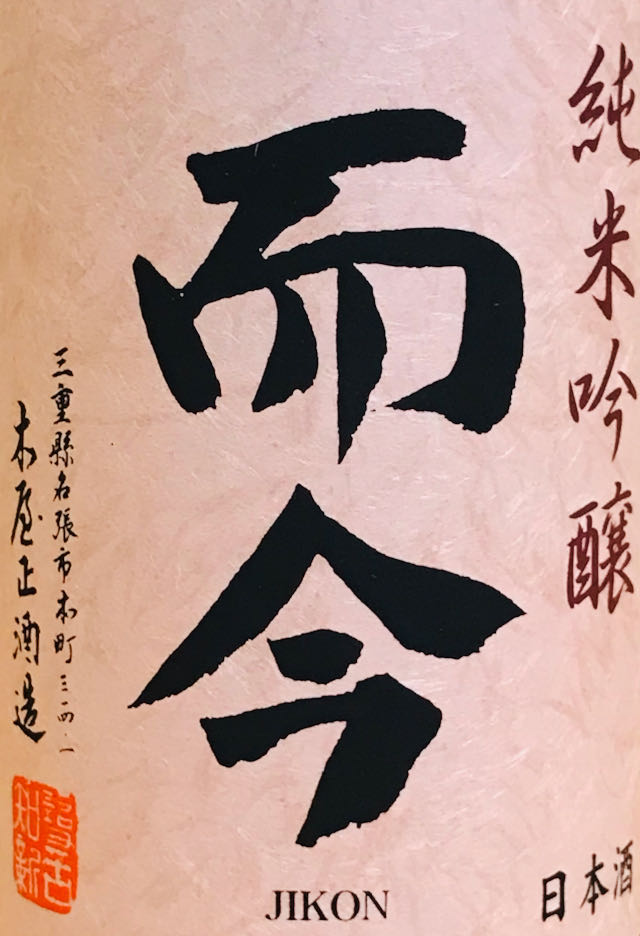 純米吟醸
而今
三重縣名張市本町三一四.一
木屋正酒造
温故知新
JIKON
日本酒